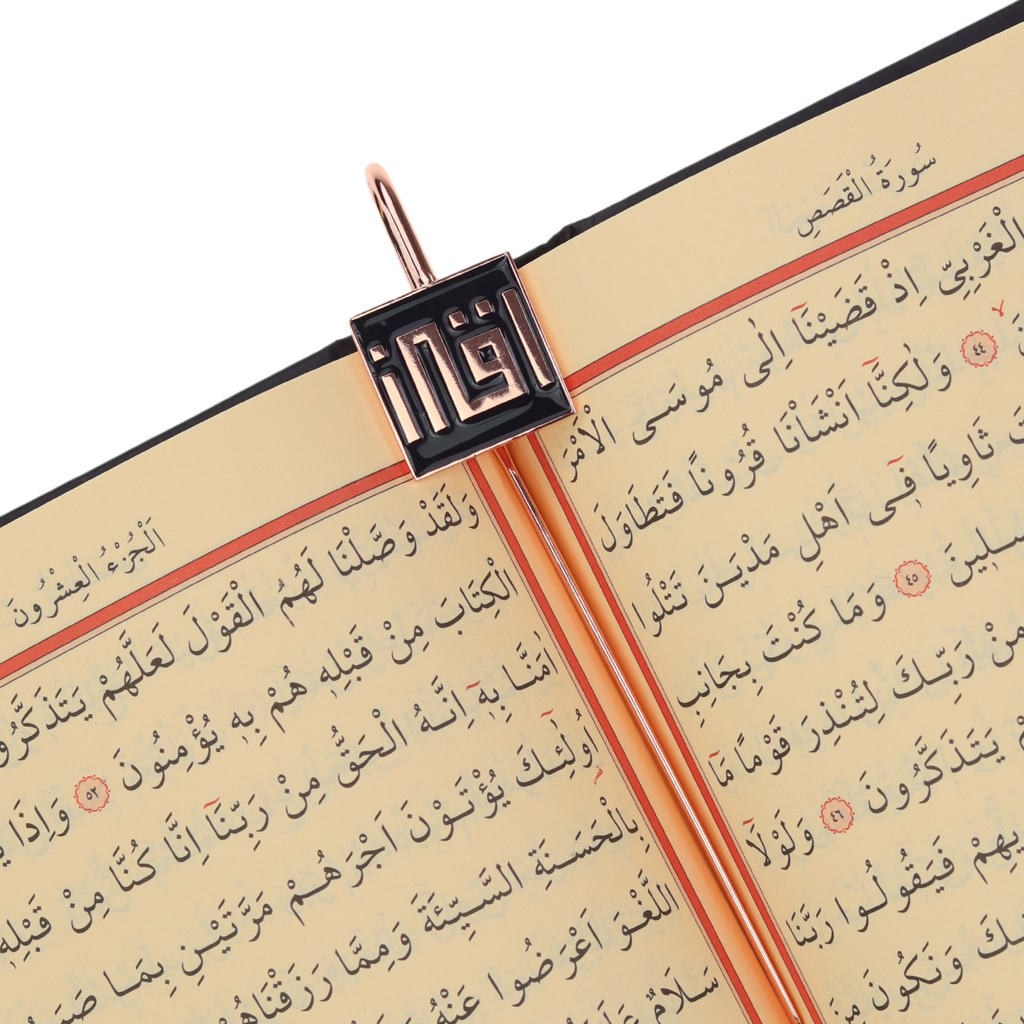 اقرأ
سُورَةُ الْقَصَصِ
الْغَرْبِيِّ اِذْ قَضَيْنَٓا اِلٰى مُوسَى الْاَمْرَ
٤٤ وَلٰكِنَّٓا اَنْشَأْنَا قُرُونًا فَتَطَاوَلَ
ثَاوِيًا فٓى اَهْلِ مَدْيَنَ تَتْلُوا
٤٥ وَمَا كُنْتَ بِجَانِبِ
مِنْ رَبِّكَ لِتُنْذِرَ قَوْمًا مَٓا
يَتَذَكَّرُونَ ٤٦ وَلَوْلَٓا
فَيَقُولُوا رَبَّنَا
وَنَكُونَ مِنَ
اَلْجُزْءُ الْعِشْرُونَ
وَلَقَدْ وَصَّلْنَا لَهُمُ الْقَوْلَ لَعَلَّهُمْ يَتَذَكَّرُونَ
الْكِتَابَ مِنْ قَبْلِهٖ هُمْ بِهٖ يُؤْمِنُونَ ٥٢ وَاِذَا
اٰمَنَّا بِهٖٓ اِنَّهُ الْحَقُّ مِنْ رَبِّنَٓا اِنَّا كُنَّا مِنْ قَبْلِهٖ
اُولٰٓئِكَ يُؤْتَوْنَ اَجْرَهُمْ مَرَّتَيْنِ بِمَا
بِالْحَسَنَةِ السَّيِّئَةَ وَمِمَّا رَزَقْنَاهُمْ
اللَّغْوَ اَعْرَضُوا عَنْهُ
سَلَامٌ